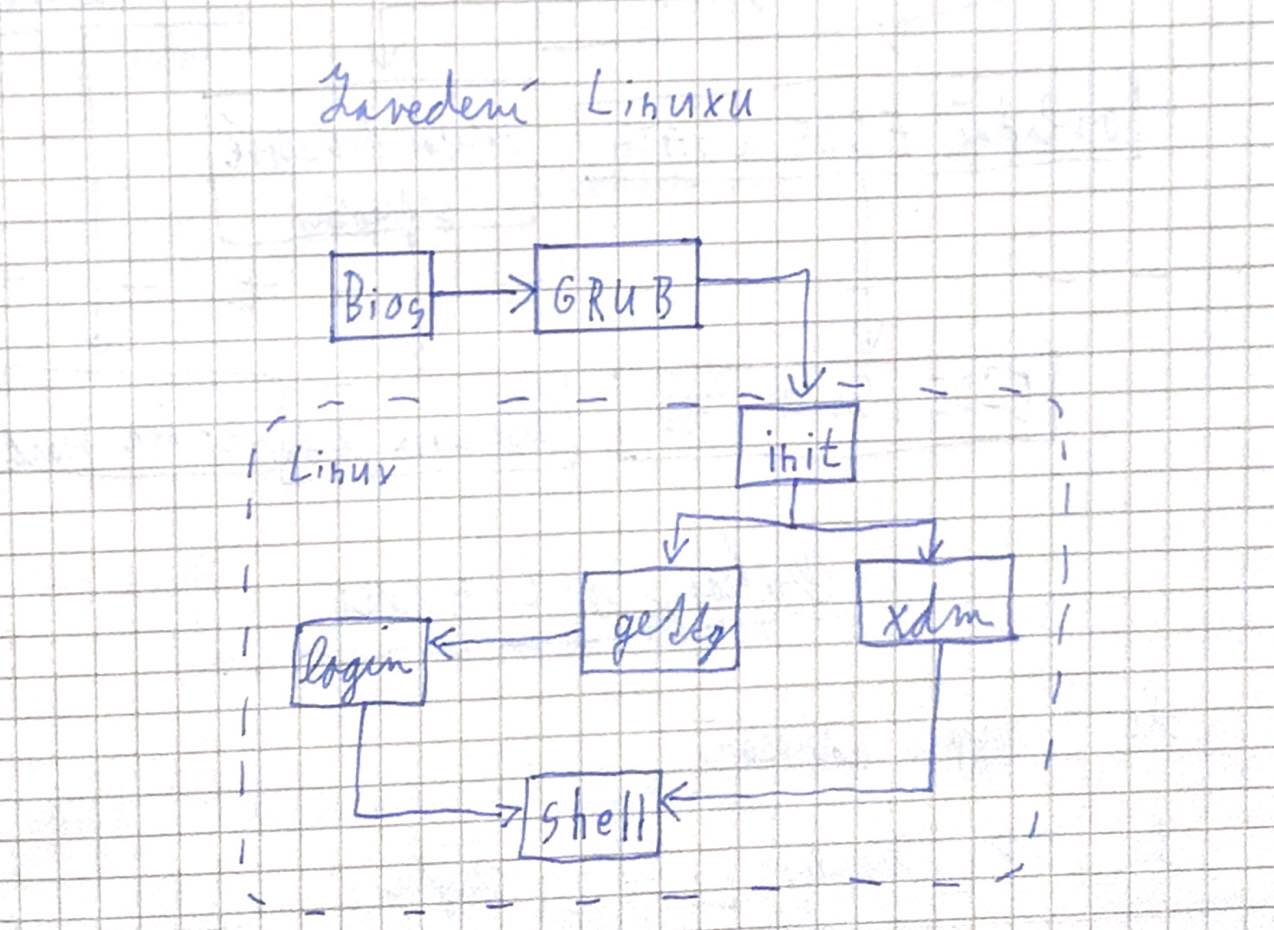 Zavedení Linuxu
Bios
GRUB
Linux
init
getty
xdm
login
shell